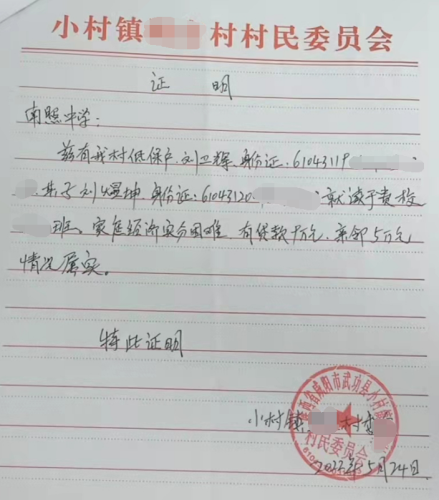 小村镇 村村民委员会
证 明
南照中学:
兹有我村低保户刘卫辉,身份证:61043119
其子刘煜坤,身份证:61043120 就读于贵校
班、家庭经济实分困难 有贷款十万元,亲邻5万元
情况属实。
特此证明
小村镇 村委
陕西省咸阳市武功县小村镇
村民委员会
2022年5月24日